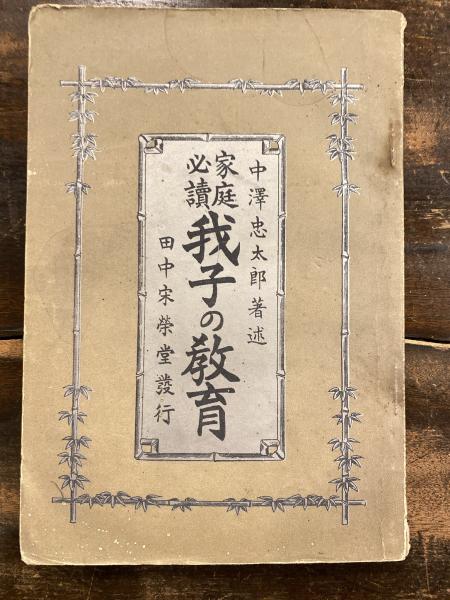 中澤忠太郎著述
家庭
必讀
我子の教育
田中宋榮堂發行